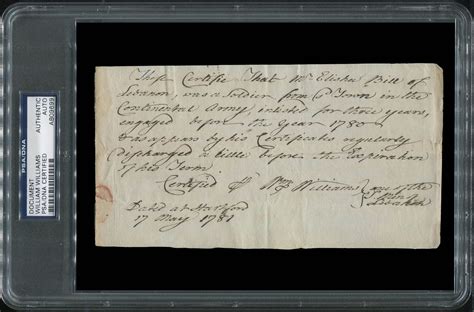 PSA/DNA
DOCUMENT
WILLIAM WILLIAMS
PSA/DNA CERTIFIED
AUTHENTIC
AUTO
These Certifie That Mr Elisha Bill of
Lebanon, was a Soldier from sd Town in the
Continental Army, inlisted for three years,
engaged before the Year 1780
as appears by his Certificate regularly
discharged a little before the Expiration
of his Term.
Certified Wm Williams one of the
Dated at Hartford
17 May 1781